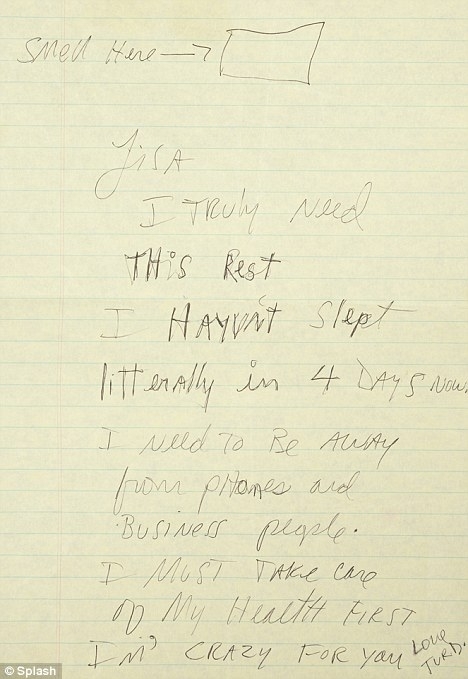 Smell Here →
Lisa
I TRuly Need
THis Rest
I HAvVn't Slept
litterally in 4 DAYS Now.
I need To Be AWAy
from pHones and
Business people.
I MUST TAKE Care
of My HealtH FIRST
I'm' CRAZY FOR you
Love
TURD.
© Splash